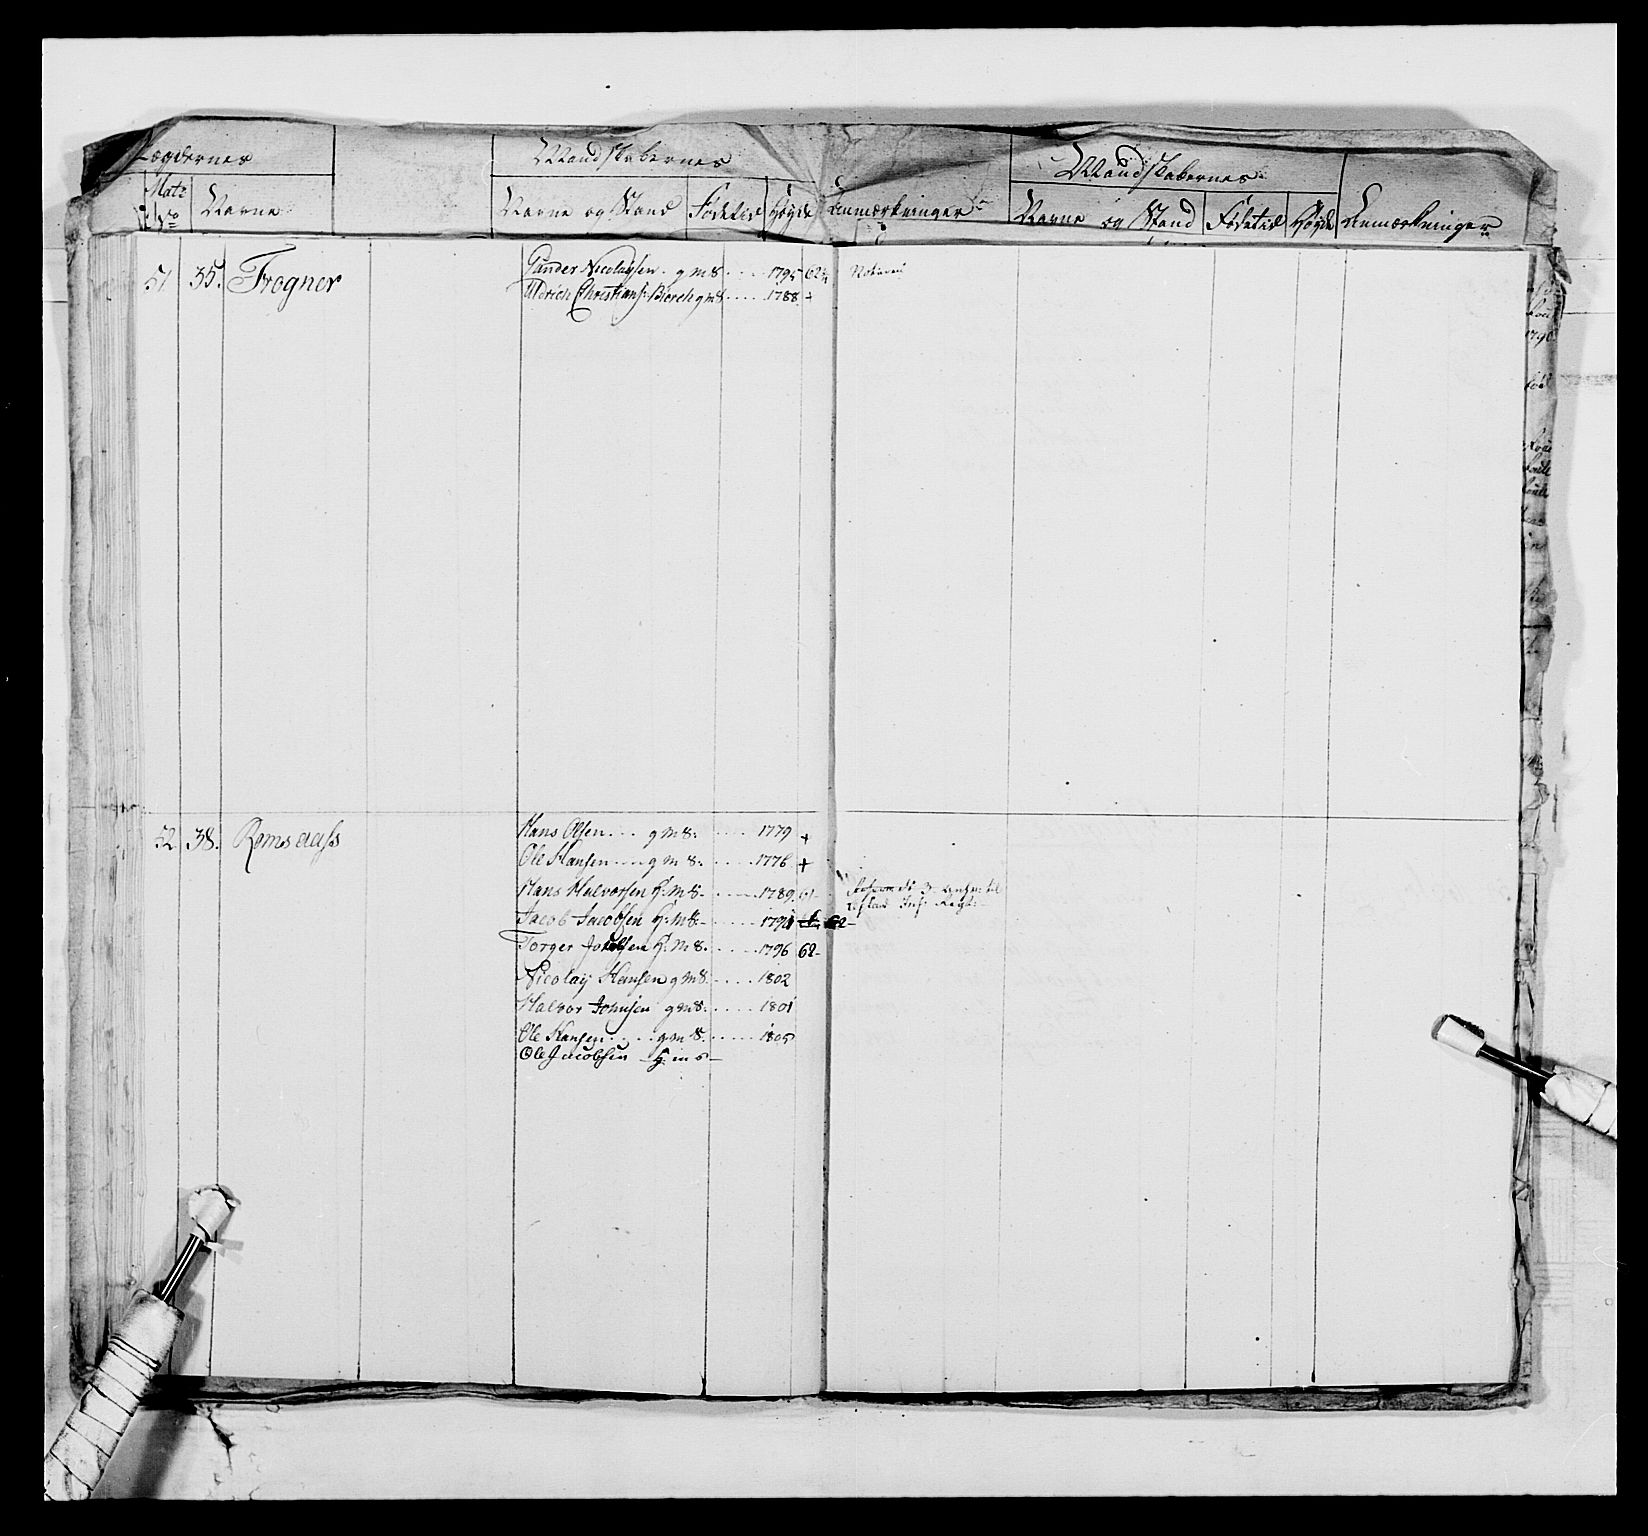 Lægdernes Mandskabernes Mandskabernes
Matr No Navne Navne og Stand Fødetid Høyde Anmærkninger Navne og Stand Fødetid Høyde Anmærkninger
51 35. Frogner Gunder Nicolaysen g m 8 1795 62¾
Uldrich Christians: Bierch g m 8 1788 +
52 38. Romsaass Hans Olsen g m 8. 1779 +
Ole Hansen g m 8. 1776 +
Hans Halvorsen H: m 8. 1789. 61
Jacob Jacobsen H: m 8. 1791 62-
Torger Jocobsen H: m 8. 1796 62-
Nicolay Hansen g m 8. 1802
Halvor Johnsen g m 8. 1801
Ole Hansen g m 8. 1805
Ole Jacobsen H: m 8